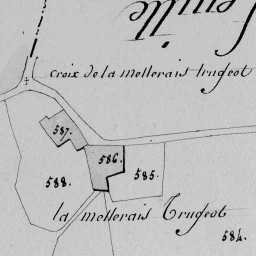 Feuille
croix de la mellerais trugeot
587.
586.
588.
585.
la mellerais Trugeot
584.